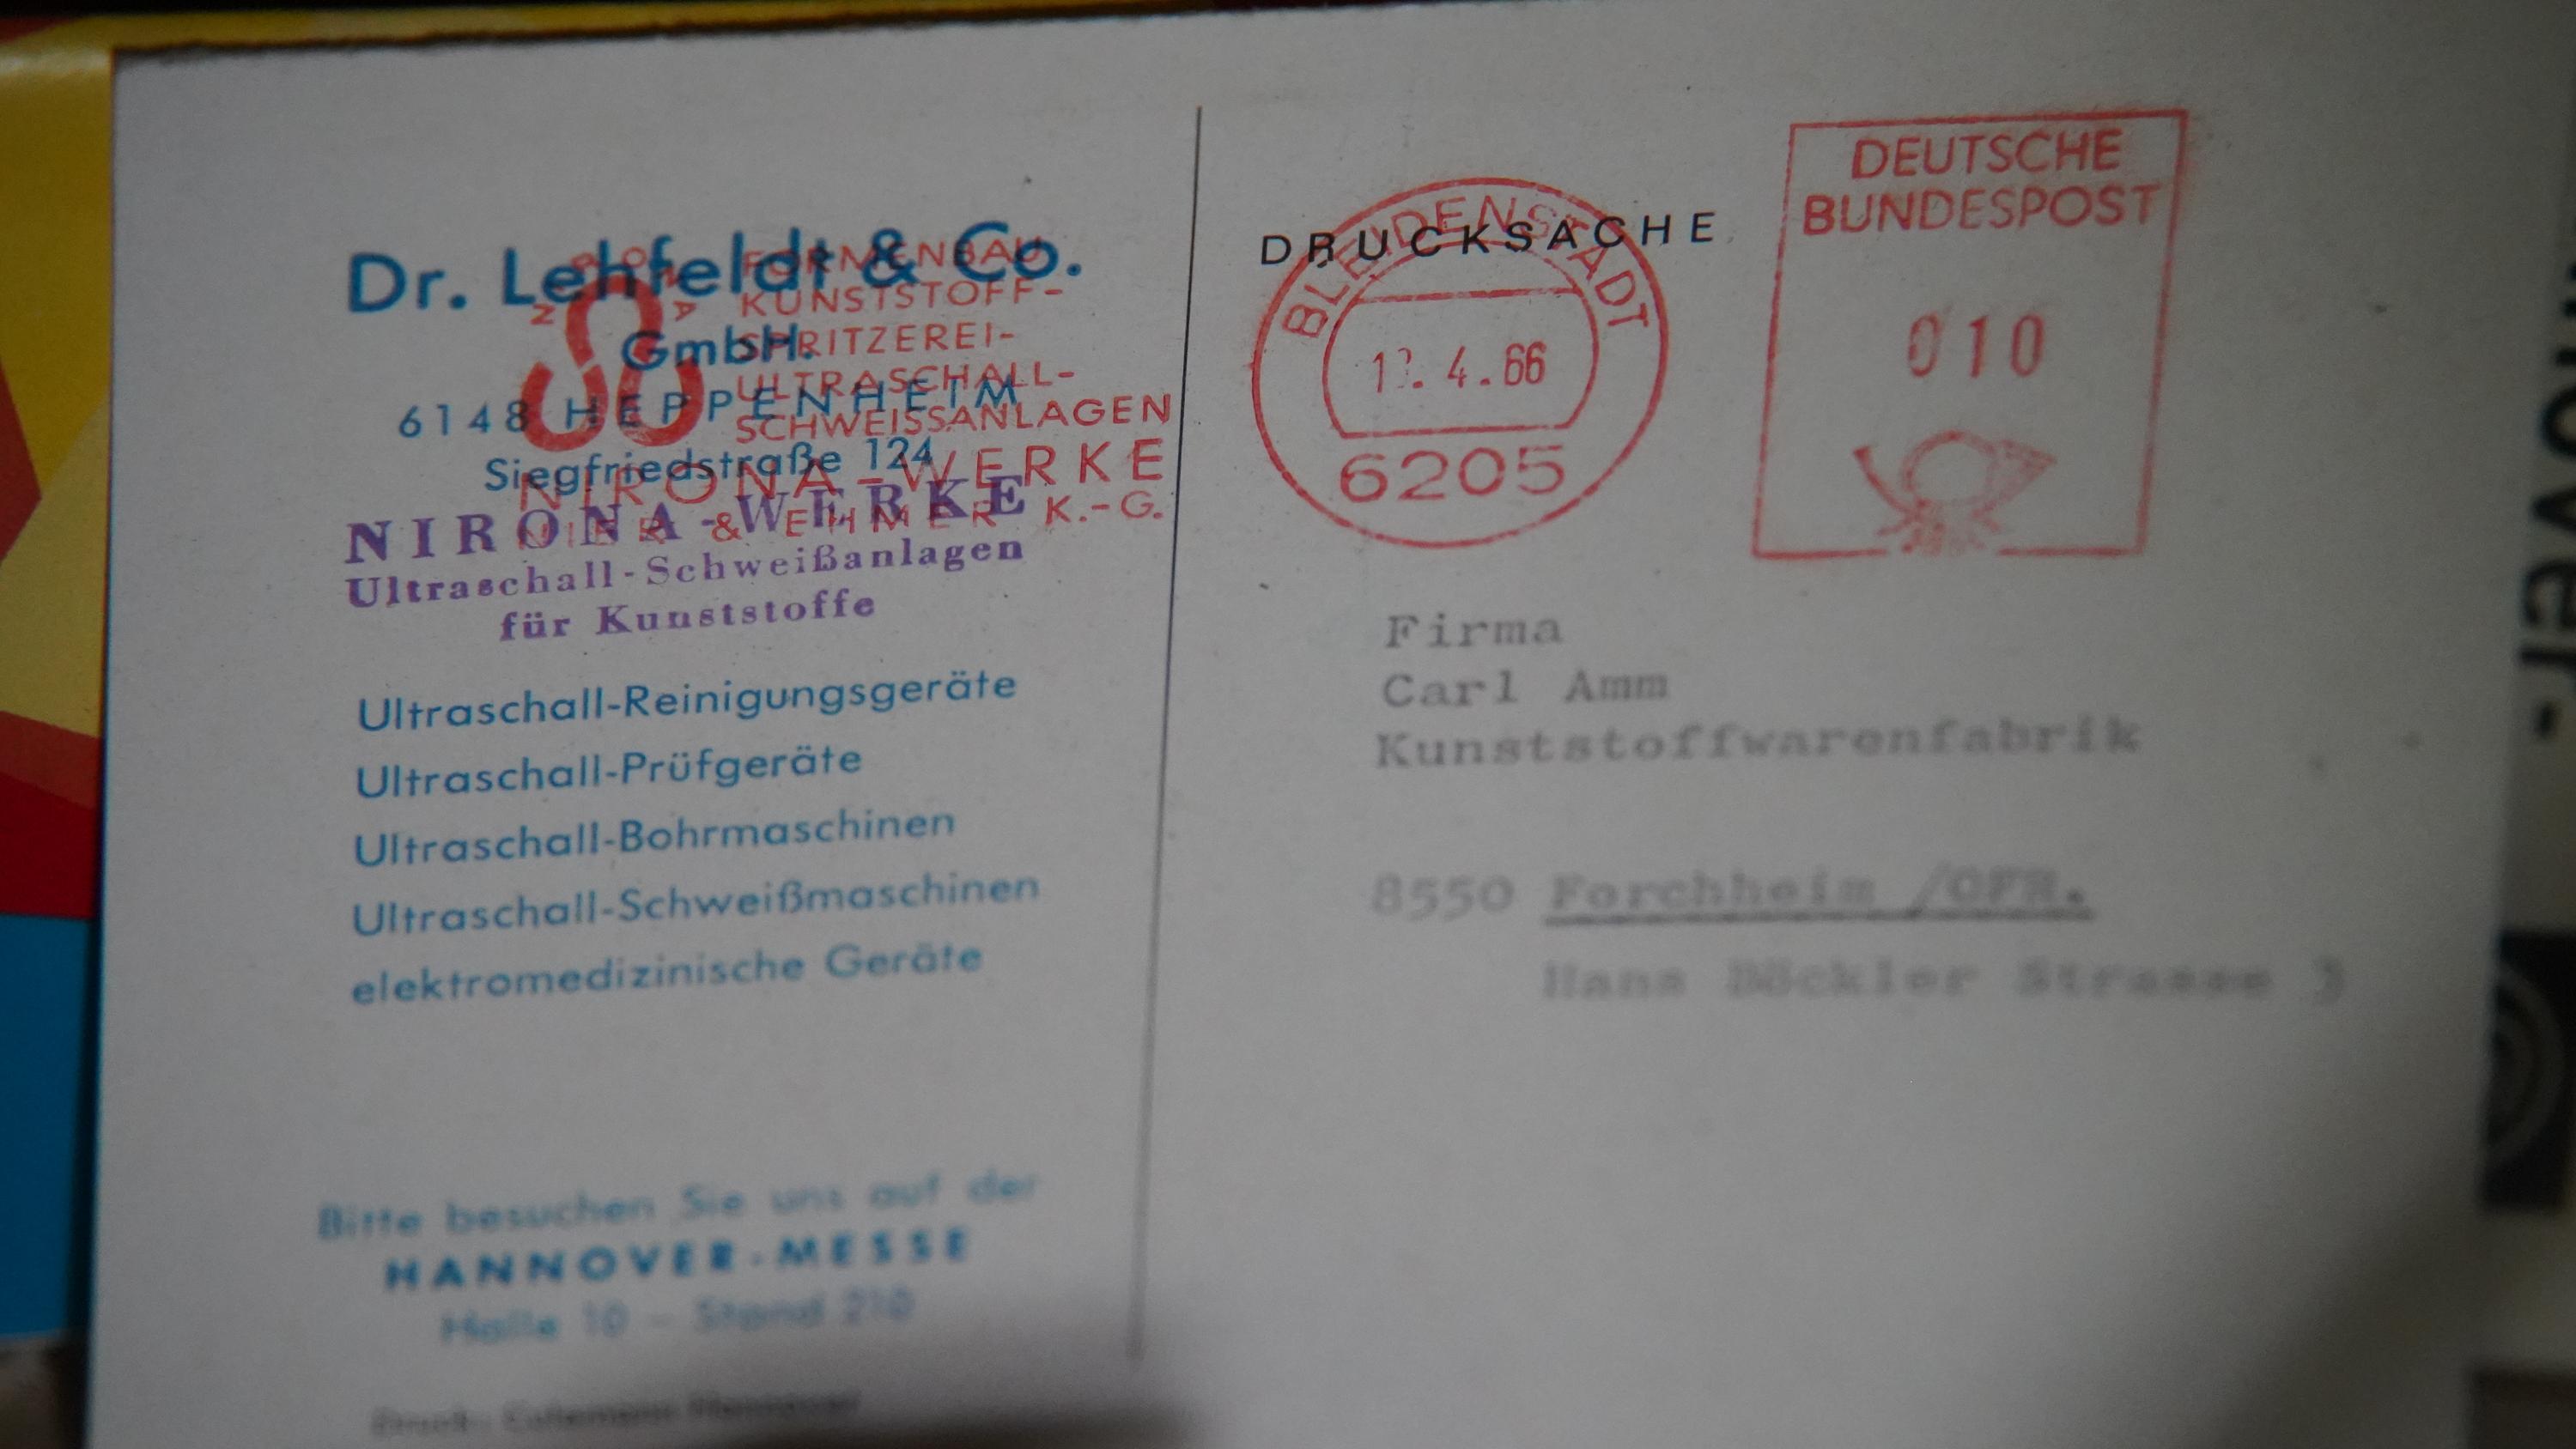 Dr. Lehfeldt & Co.
GmbH.
6148 HEPPENHEIM
Siegfriedstraße 124
NIRONA
FORMENBAU
KUNSTSTOFF-
SPRITZEREI-
ULTRASCHALL-
SCHWEISSANLAGEN
NIRONA-WERKE
& EHMER K.-G.
NIRONA-WERKE
Ultraschall-Schweißanlagen
für Kunststoffe
Ultraschall-Reinigungsgeräte
Ultraschall-Prüfgeräte
Ultraschall-Bohrmaschinen
Ultraschall-Schweißmaschinen
elektromedizinische Geräte
Bitte besuchen Sie uns auf der
HANNOVER-MESSE
Halle 10 - Stand 210
Druck: Hannover
DRUCKSACHE
BLEIDENSTADT
.4.66
6205
DEUTSCHE
BUNDESPOST
010
Firma
Carl Amm
Kunststoffwarenfabrik
8550 Forchheim /OFR.
Hans Böckler Strasse 3